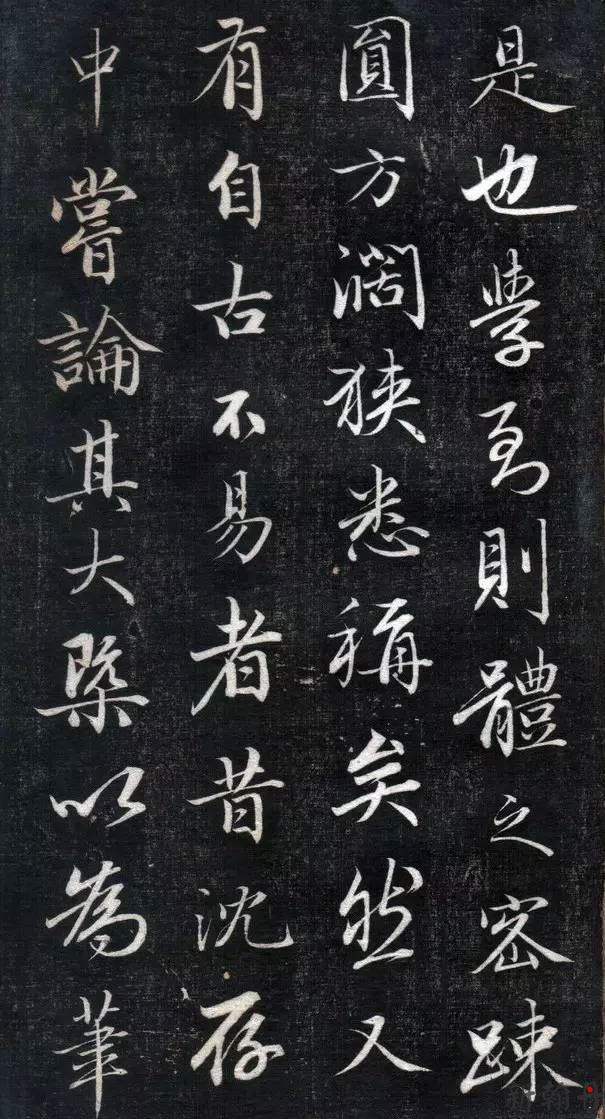 是也學到則體之密疎
圓方濶狹悉稱矣然又
有自古不易者昔沈存
中嘗論其大槩以為筆